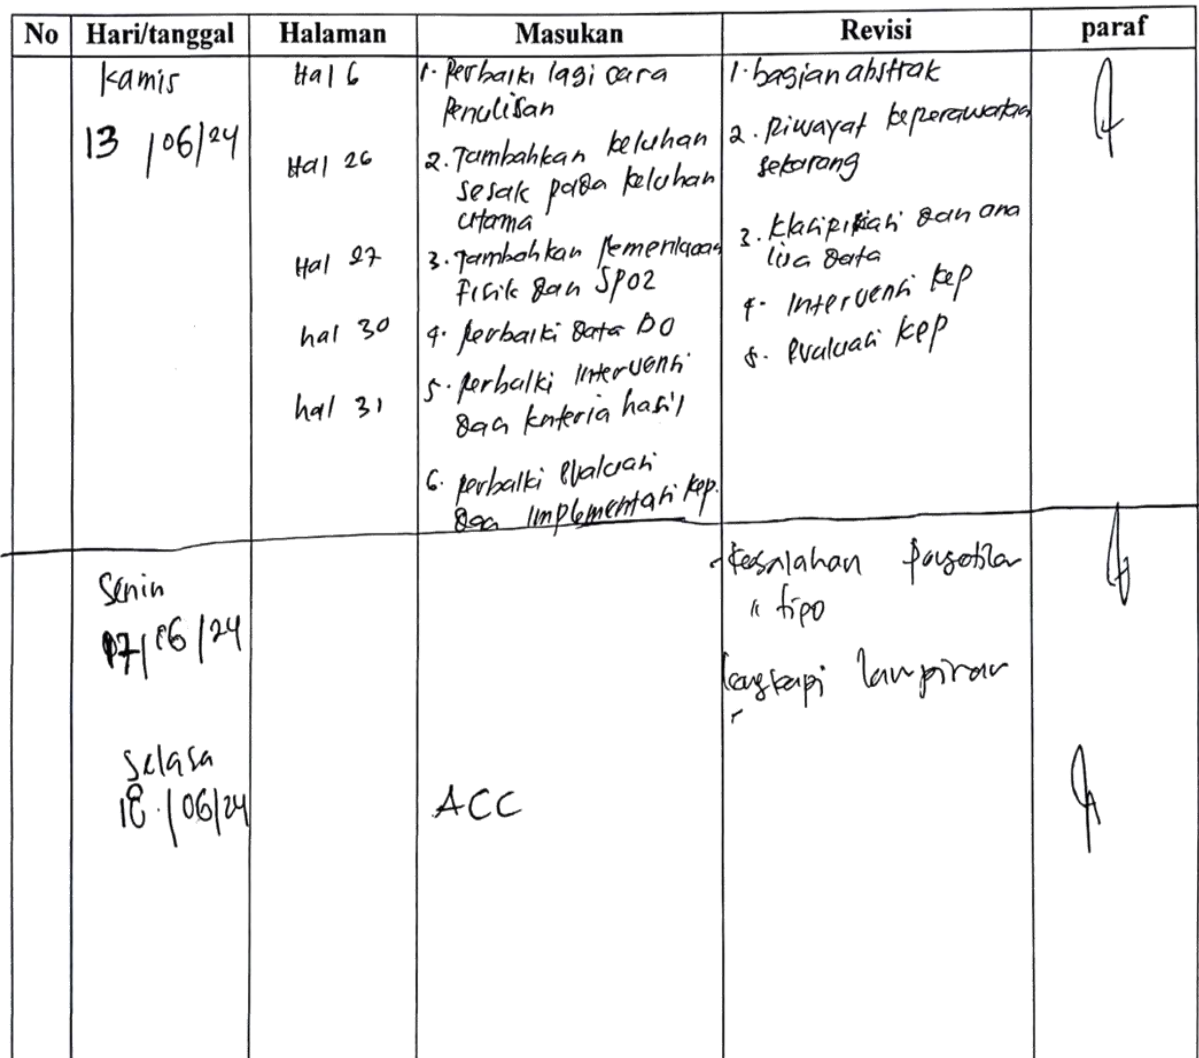 No Hari/tanggal Halaman Masukan Revisi paraf
Kamis
13 /06/24
Hal 6
Hal 26
Hal 27
hal 30
hal 31
1. Perbaiki lagi cara
Penulisan
2. Tambahkan keluhan
sesak pada keluhan
utama
3. Tambahkan Pemeriksaan
Fisik dan SPO2
4. perbaiki data DO
5. perbaiki intervensi
dan kriteria hasil
6. perbaiki evaluasi
dan implementasi kep.
1. bagian abstrak
2. Riwayat keperawatan
sekarang
3. Klasifikasi dan ana
lisa data
4. Intervensi kep
5. evaluasi kep
Senin
17/06/24
- Kesalahan
" tipo
lengkapi lampiran
Selasa
18/06/24
ACC